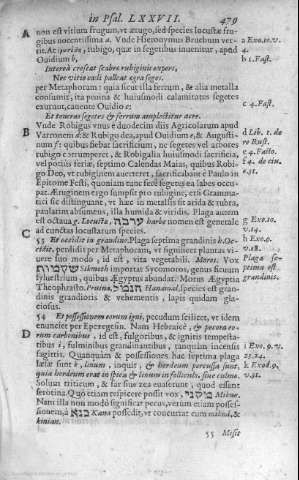 in Psal. LXXVII. 479
A non est vitium frugum, vt ærugo, sed species locustæ frugibus nocentissima a. Vnde Hieronymus Bruchum vertit. At quid b, rubigo, quæ in segetibus inuenitur, apud
Ouidium b,
Interea crescat scabræ rubiginis expers,
Nec vitio cœli palleat ægra seges.
per Metaphoram: quia sicut illa ferrum, & alia metalla
consumit, ita pruina & huiusmodi calamitates segetes
exurunt, canente Ouidio c:
Et teneras segetes & ferrum amplectitur acre.
B Vnde Robigus vnus e duodecim diis Agricolarum apud
Varronem d & Robigo dea, apud Ouidium e, & Augustinum f: quibus fiebat sacrificium, ne segetes vel arbores
rubigo corrumperet, & Robigalia huiusmodi sacrificia,
vel potius feriæ, septimo Calendas Maias, quibus Robigo Deo, vt rubiginem auerteret, sacrificabant e Paulo in
Epitome Festi, quoniam tunc fere segetes ea labes occupat. Æruginem ergo sumpsit pro rubigine, etsi Grammatici sic distinguunt, vt hæc in metallis sit arida & rubra,
paulatim absumens, illa humida & viridis. Plaga autem
est octaua g. Locusta, ערבה harbe nomen est generale
C ad cunctas locustarum species.
53 Et occidit in grandine. Plaga septima grandinis h. Occidit, perdidit per Metaphoram, vt significet plantas viuere suo modo, id est, vita vegetabili. Moros. Vox
שקמות Sikmoth importat Sycomoros, genus ficuum
syluestrium, quibus Ægyptus abundat. Morus Ægyptia
Theophrasto. Pruina, חנמל Hanamal, species est grandinis grandioris & vehementis, lapis quidam glaciosus.
54 Et possessionem eorum igni, pecudum scilicet, vt idem
enunciet per Epexegesin. Nam Hebraice, & pecora eo-
D rum carbonibus, id est, fulgoribus, & ignitis tempestatibus i, fulminibus grandinantibus, tanquam incensis
sagittis. Quanquam & possessiones hac septima plaga
læsæ sunt k, linum, inquit, & hordeum percussa sunt,
quia hordeum erat in spica & linum in folliculis, siue culmo.
Solum triticum, & far siue zea euaserunt, quod essent
serotina. Quo etiam respicere possit vox, מקני Mikne.
Nam illa non modo significat pecus, verum etiam possessionem, a קנא Kana possedit, vt concurrat cum mikne, &
kinian.
55 Misit
a Exo. 10. v. 4.
b 1. Fast.
c 4. Fast.
d Lib. 1. de re Rust.
e 4. Fasto.
f 4. de ciu.
v. 21.
g Exo. 10.
v. 14.
h Exo. 9.
v. 18.
Plaga septima est grandinis.
i Exo. 9. v.
23. 24.
k Exod. 9.
v. 31.